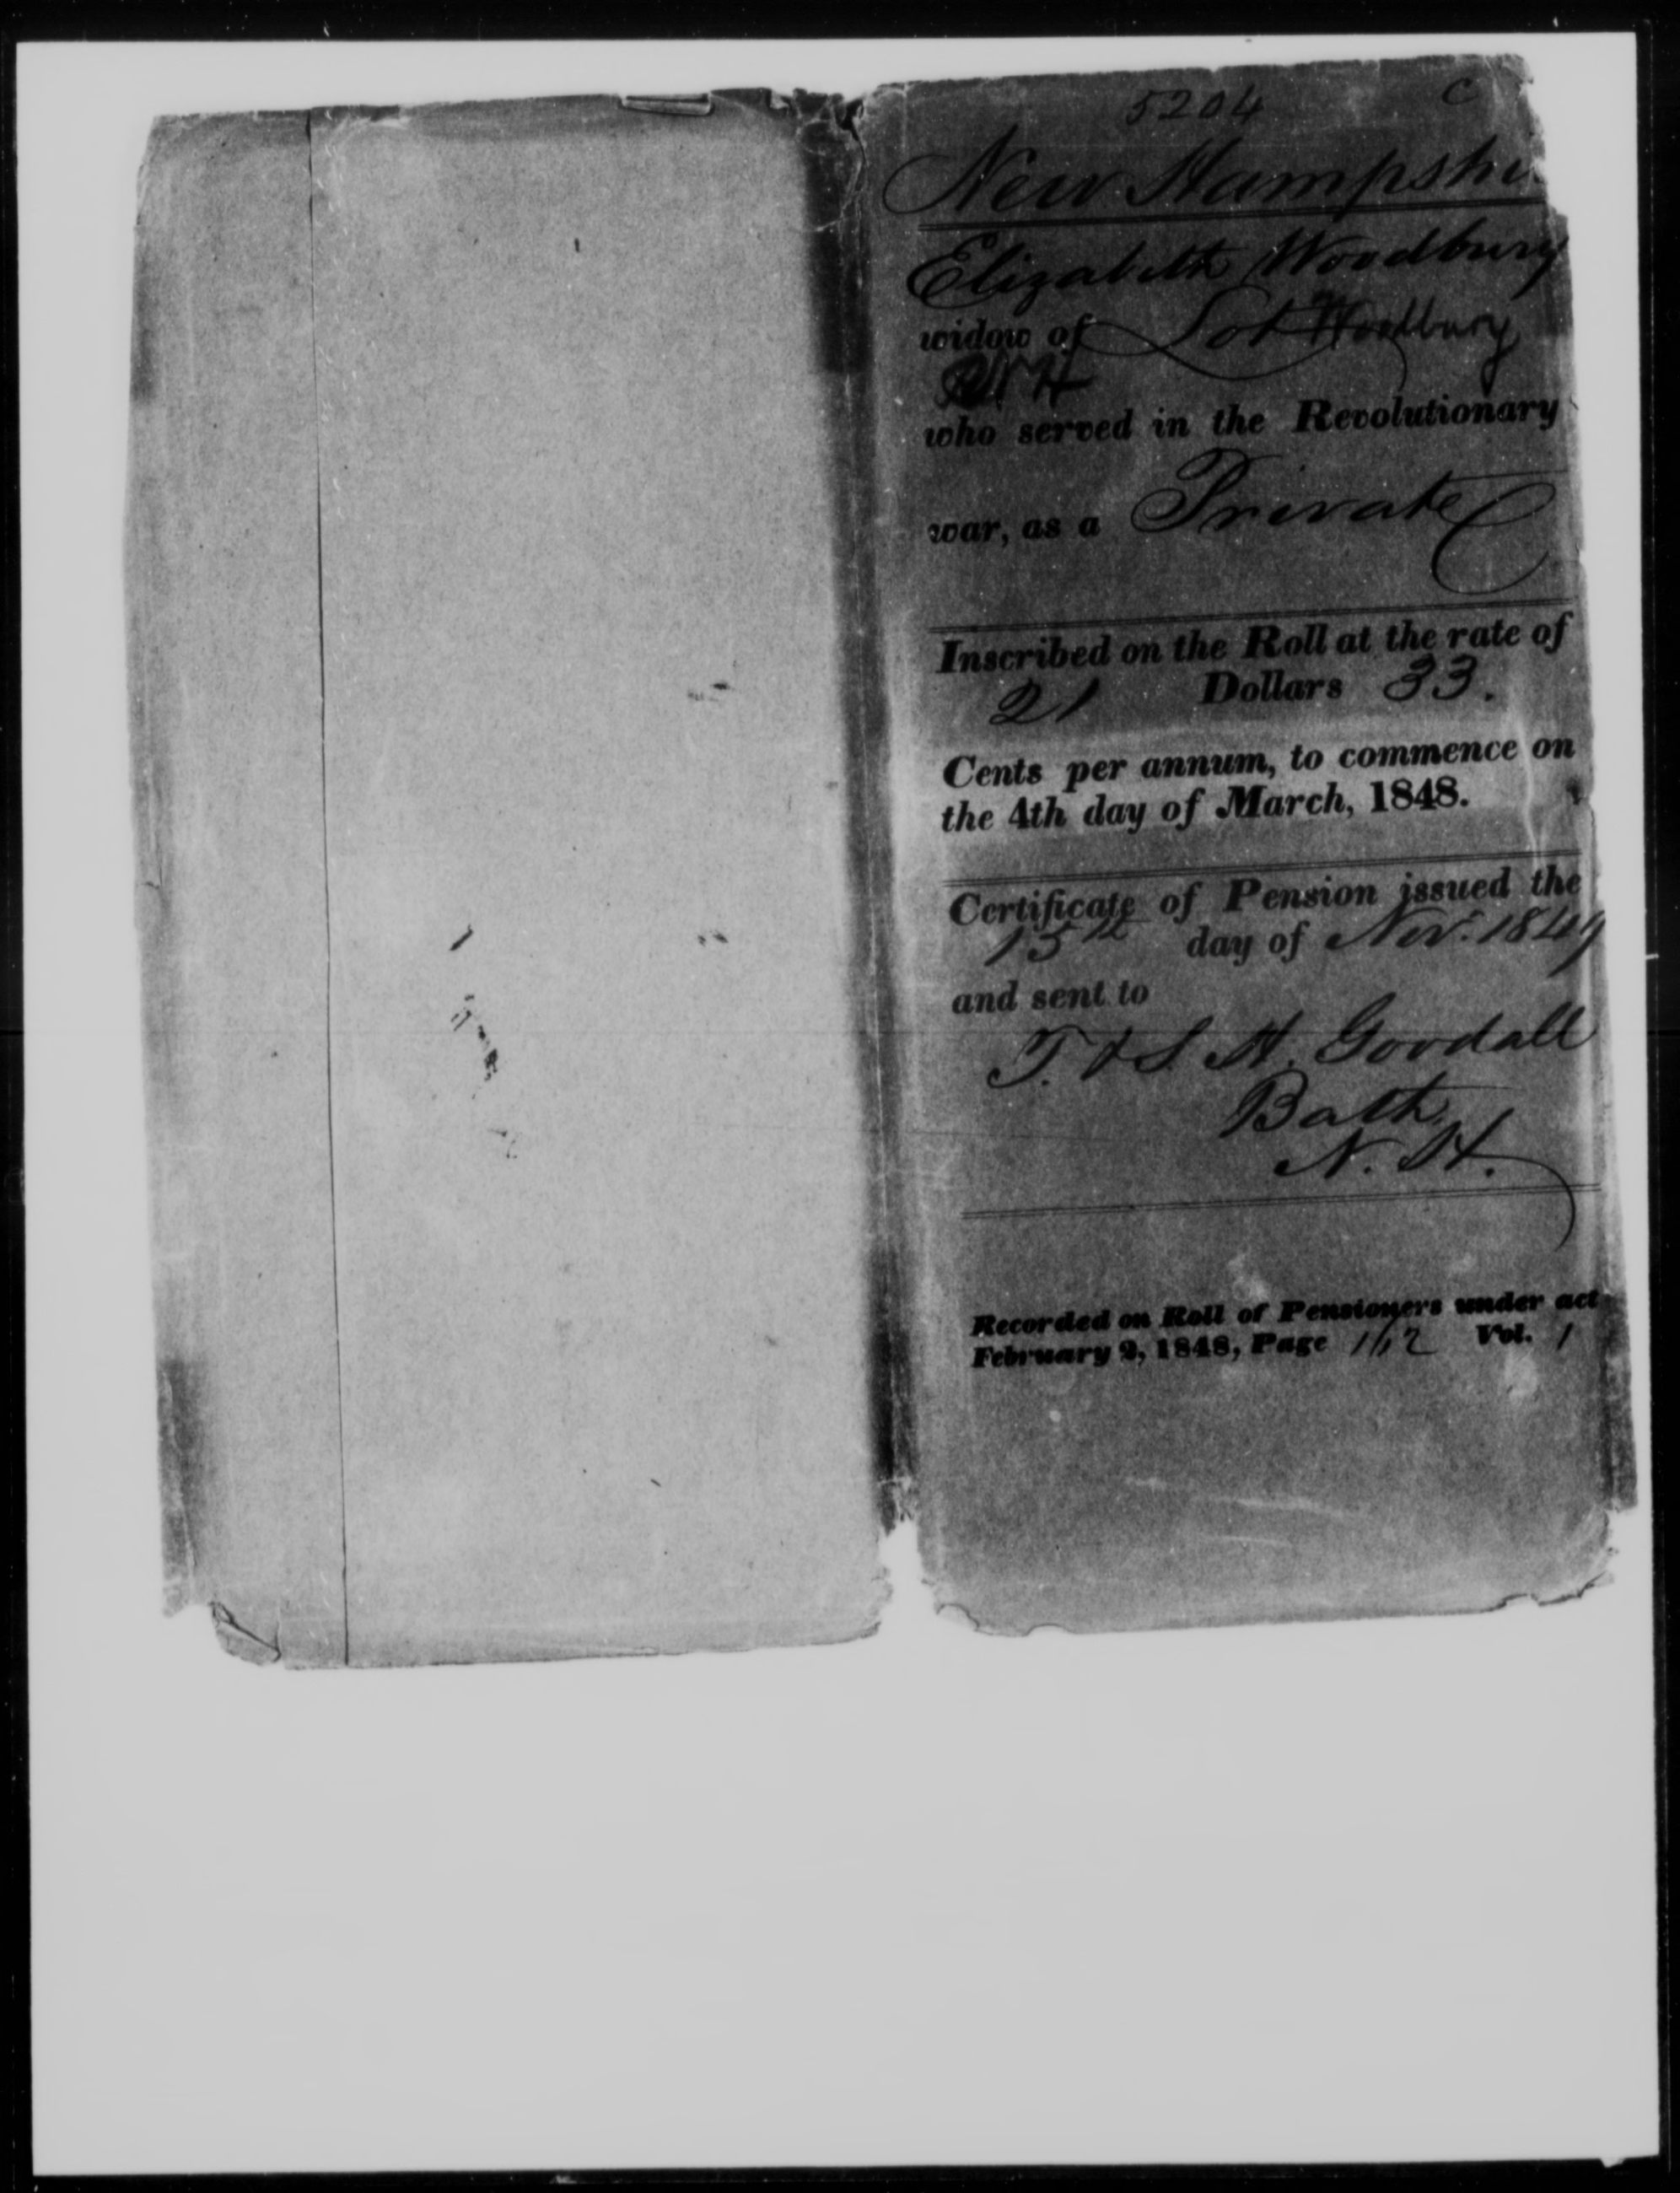 5204 C
New Hampshi
Elizabeth Woodbury
widow of Lot Woodbury
N H
who served in the Revolutionary
war, as a Private
Inscribed on the Roll at the rate of
21 Dollars 33.
Cents per annum, to commence on
the 4th day of March, 1848.
Certificate of Pension issued the
15th day of Nov. 1849
and sent to
T. & S. H. Goodall
Bath,
N. H.
Recorded on Roll of Pensioners under act
February 2, 1848, Page Vol. 1